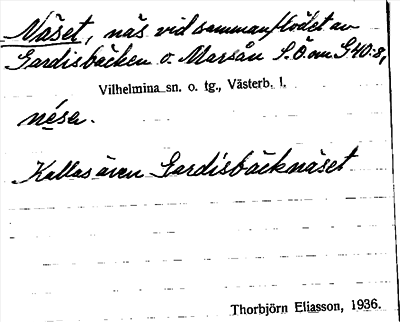 Näset, näs vid sammanflödet av
Gardisbäcken o. Marsån S.Ö. om G 40:8,
Vilhelmina sn. o. tg., Västerb. l.
néser.
Kallas även Gardisbäcknäset
Thorbjörn Eliasson, 1936.